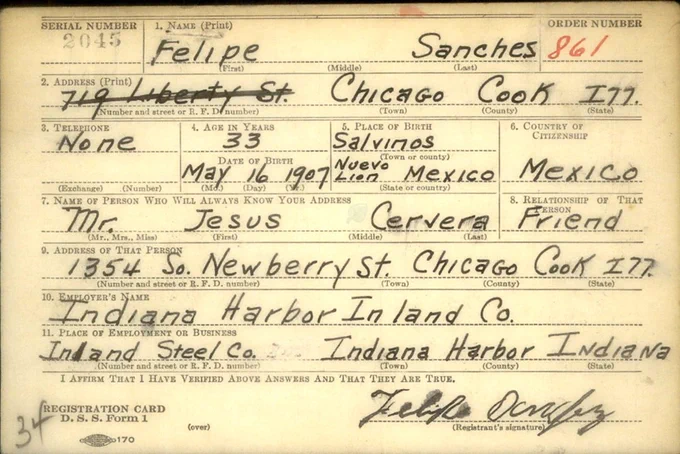 SERIAL NUMBER 1. NAME (Print) ORDER NUMBER
2045 Felipe Sanches 861
(First) (Middle) (Last)
2. ADDRESS (Print)
719 Liberty St. Chicago Cook Ill.
(Number and street or R. F. D. number) (Town) (County) (State)
3. TELEPHONE 4. AGE IN YEARS 5. PLACE OF BIRTH 6. COUNTRY OF CITIZENSHIP
None 33 Salvinos
(Town or county)
DATE OF BIRTH
May 16 1907 Nuevo Lion Mexico Mexico
(Exchange) (Number) (Mo.) (Day) (Yr.) (State or country)
7. NAME OF PERSON WHO WILL ALWAYS KNOW YOUR ADDRESS 8. RELATIONSHIP OF THAT PERSON
Mr. Jesus Cervera Friend
(Mr., Mrs., Miss) (First) (Middle) (Last)
9. ADDRESS OF THAT PERSON
1354 So. Newberry St. Chicago Cook Ill.
(Number and street or R. F. D. number) (Town) (County) (State)
10. EMPLOYER'S NAME
Indiana Harbor Inland Co.
11. PLACE OF EMPLOYMENT OR BUSINESS
Inland Steel Co. Indiana Harbor Indiana
(Number and street or R. F. D. number) (Town) (County) (State)
I AFFIRM THAT I HAVE VERIFIED ABOVE ANSWERS AND THAT THEY ARE TRUE.
REGISTRATION CARD
D. S. S. Form 1 (over) (Registrant's signature)
34 170
Felipe